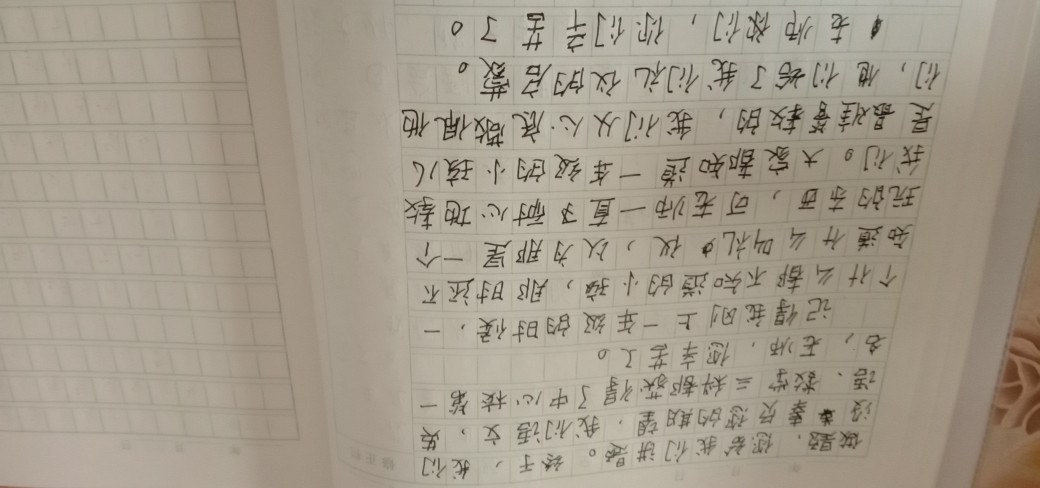 做题，您给我们讲题。终于，我们
没辜负您的期望，我们语文、英
语、数学三科都获得了中心校第一
名，老师，您辛苦了。
记得我刚上一年级的时候，一
个什么都不知道的小孩，那时还不
知道什么叫礼仪，以为那是一个
玩的东西，可老师一直了耐心地教
我们。大家都知道一年级的小孩儿
是最难管教的，我们从心底敬佩他
们，他们给了我们礼仪的启蒙。
老师你们，你们辛苦了。